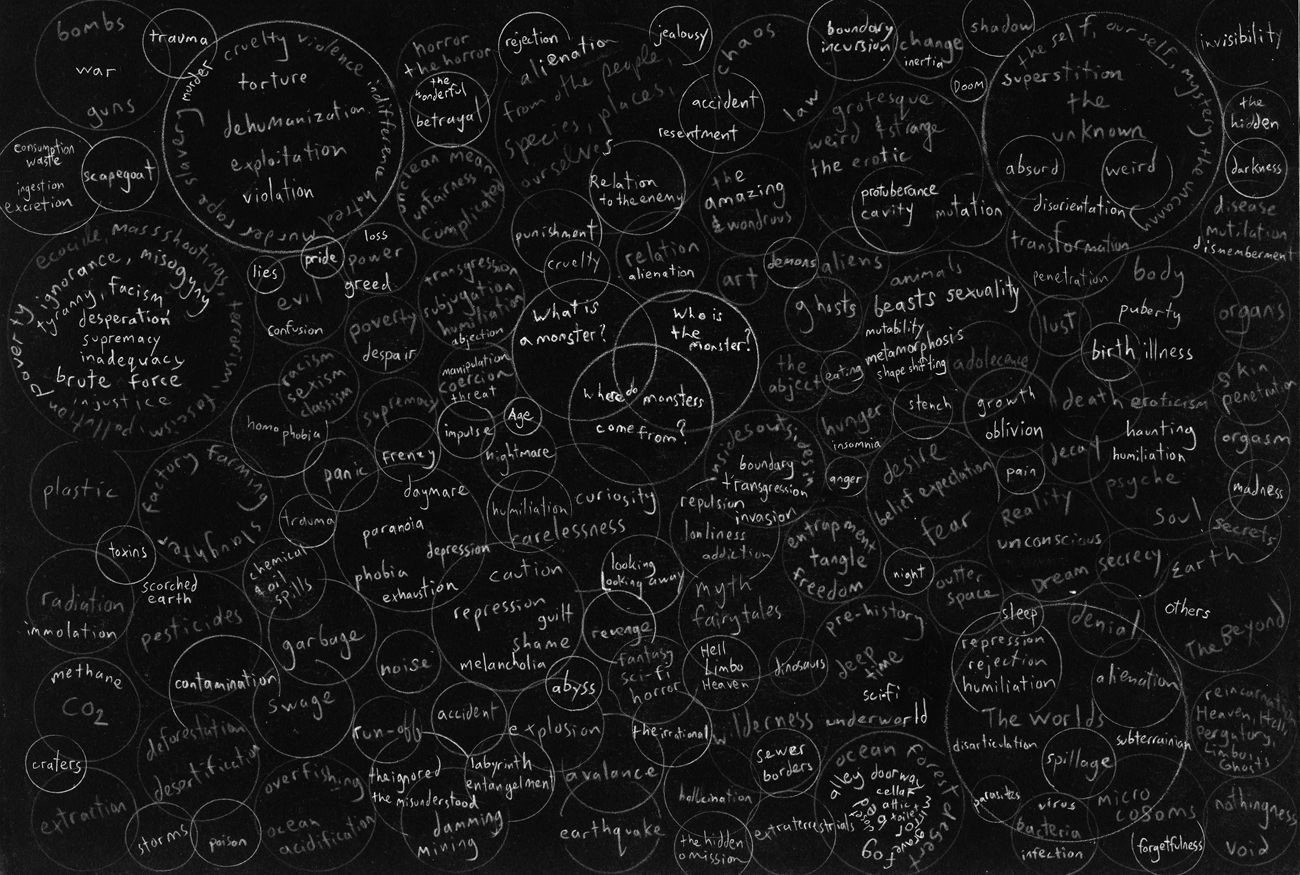 bombs
war
guns
trauma
cruelty violence indifference hatred murder rape slavery murder
torture
dehumanization
exploitation
violation
horror
the horror
the
wonderful
betrayal
rejection
alienation
from the people,
species, places,
ourselves
jealousy
chaos
law
accident
resentment
boundary
incursion
change
inertia
Doom
shadow
the self, our self, mystery, the uncanny
superstition
the
unknown
absurd
weird
disorientation
invisibility
the
hidden
darkness
disease
mutilation
dismemberment
consumption
waste
ingestion
excretion
scapegoat
unclean mean
unfairness
complicated
Relation
to the enemy
the
amazing
& wondrous
grotesque
weird & strange
the erotic
protuberance
cavity
mutation
transformation
penetration
ecocide, mass shootings, terrorism, fascism, pollution
Poverty
ignorance, misogyny
tyranny, facism
desperation
supremacy
inadequacy
brute force
injustice
lies
pride
loss
power
greed
evil
confusion
poverty
despair
transgression
subjugation
humiliation
abjection
manipulation
coercion
threat
punishment
cruelty
relation
alienation
art
demons
aliens
ghosts
animals
beasts sexuality
mutability
metamorphosis
shape shifting
adolecence
body
puberty
lust
birth illness
organs
skin
penetration
What is
a monster?
Who is
the
monster?
where do monsters
come from?
the
abject
eating
racism
sexism
classism
supremacy
homophobia
panic
frenzy
impulse
Age
nightmare
daymare
humiliation
curiosity
carelessness
insides outs
boundary
transgression
repulsion
invasion
lonliness
addiction
hunger
insomnia
anger
stench
growth
oblivion
death eroticism
haunting
humiliation
decay
psyche
soul
orgasm
madness
secrets
desire
belief expectation
fear
pain
Reality
unconscious
Dream secrecy
plastic
factory farming
slaughter
toxins
trauma
chemical
& oil
spills
paranoia
depression
phobia
exhaustion
caution
repression
guilt
shame
melancholia
looking
looking away
revenge
myth
fairytales
entrapment
tangle
freedom
night
outter
space
Earth
others
The Beyond
scorched
earth
radiation
immolation
pesticides
garbage
noise
abyss
fantasy
sci-fi
horror
Hell
Limbo
Heaven
dinosaurs
pre-history
deep
time
sci-fi
underworld
wilderness
sleep
denial
repression
rejection
humiliation
alienation
The worlds
disarticulation
subterrainian
spillage
parasites
virus
bacteria
infection
micro
cosoms
forgetfulness
methane
CO2
contamination
swage
craters
deforestation
desertification
extraction
storms
poison
overfishing
ocean
acidification
run-off
accident
explosion
the ignored
the misunderstood
labyrinth
entangelment
damming
mining
avalance
earthquake
the irrational
sewer
borders
hallucination
the hidden
omission
extraterrestrials
ocean forest desert
alley doorway
cellar
attic
grave
fog
reincarnation
Heaven, Hell,
Pergutory,
Limbo
Ghosts
nothingness
void